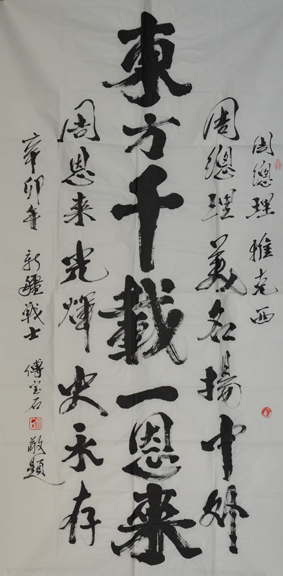 周總理雅克西
周總理美名揚中外
東方千載一恩来
周恩来光輝史永存
辛卯年 新疆戰士 傅宝石 敬題